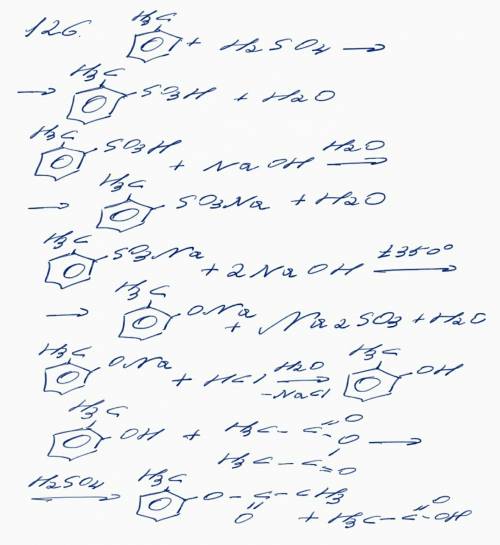 126. H3C + H2SO4 →
→ H3C SO3H + H2O
H3C SO3H + NaOH H2O →
→ H3C SO3Na + H2O
H3C SO3Na + 2NaOH t350° →
→ H3C ONa + Na2SO3 + H2O
H3C ONa + HCl H2O → -NaCl H3C OH
H3C OH + H3C-C=O O →
H3C-C=O
H2SO4 → H3C O-C-CH3 O + H3C-C-OH O